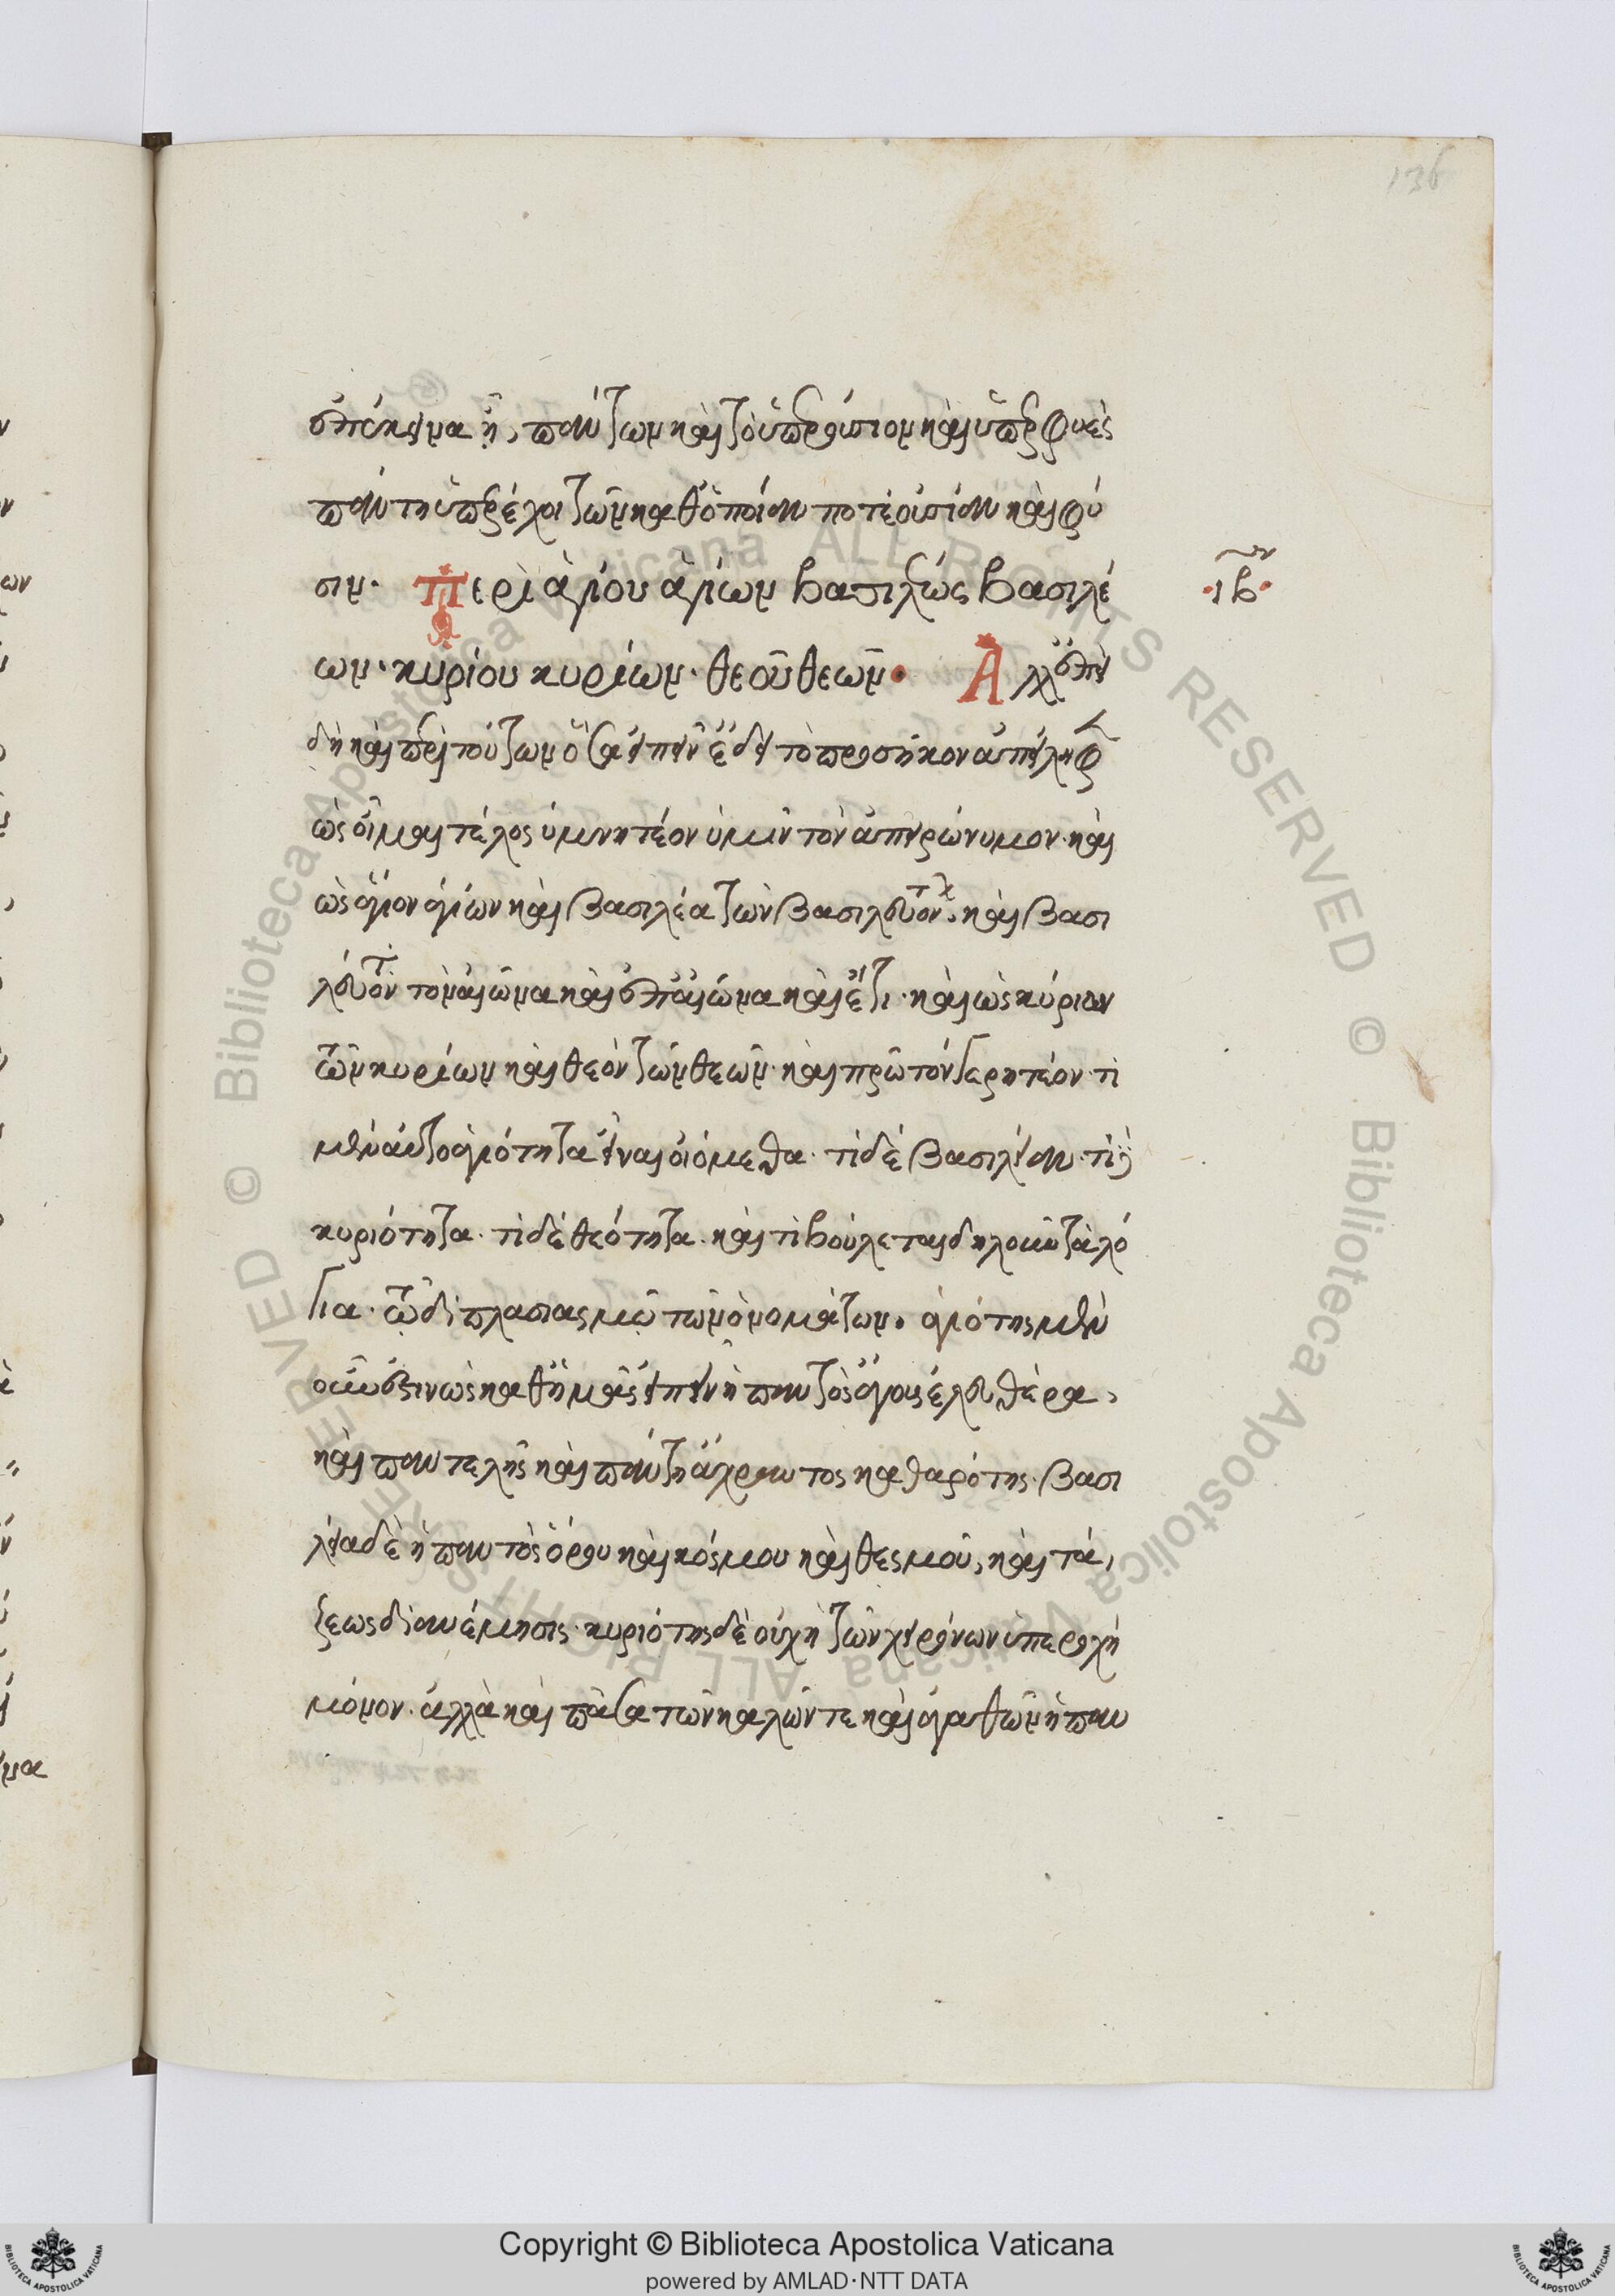 136
ἐπέκεινα ᾖ, πάντων καὶ τὸ ὑπερούσιον καὶ ὑπερφυὲς
πάντῃ ὑπερέχει τῶν καθ' ὁποίαν ποτὲ οὐσίαν καὶ φύ
σιν. Περὶ ἁγίου ἁγίων βασιλέως βασιλέ
ιβον
ων. κυρίου κυρίων. θεοῦ θεῶν. Ἀλλ' ἐπεὶ
δὴ καὶ περὶ τούτων ὅσα εἰπεῖν ἔδει τὸ προσῆκον ἀπείληφε
ὡς οἶμαι τέλος ὑμνητέον ὑμῖν τὸν ἀπειρώνυμον. καὶ
ὡς ἅγιον ἁγίων καὶ βασιλέα τῶν βασιλευόντων, καὶ βασι
λεύοντα τὸν αἰῶνα καὶ ἐπ' αἰῶνα καὶ ἔτι. καὶ ὡς κύριον
τῶν κυρίων καὶ θεὸν τῶν θεῶν. καὶ πρῶτόν γε ῥητέον. τί
μὲν αὐτοαγιότητα εἶναι οἰόμεθα. τί δὲ βασιλείαν. τί δὲ
κυριότητα. τί δὲ θεότητα. καὶ τί βούλεται δηλοῦν τὰ λό
για. τῷ διπλασιασμῷ τῶν ὀνομάτων. ἁγιότης μὲν
οὖν ἐστιν ὡς καθ' ἡμᾶς εἰπεῖν ἡ παντὸς ἄγους ἐλευθέρα,
καὶ παντελὴς καὶ πάντῃ ἄχραντος καθαρότης. βασι
λεία δὲ ἡ παντὸς ὅρου καὶ κόσμου καὶ θεσμοῦ, καὶ τά,
ξεως διανέμησις. κυριότης δὲ οὐχ ἡ τῶν χειρόνων ὑπεροχὴ
μόνον. ἀλλὰ καὶ πᾶσα τῶν καλῶν τε καὶ ἀγαθῶν ἡ παν
Copyright © Biblioteca Apostolica Vaticana
powered by AMLAD·NTT DATA